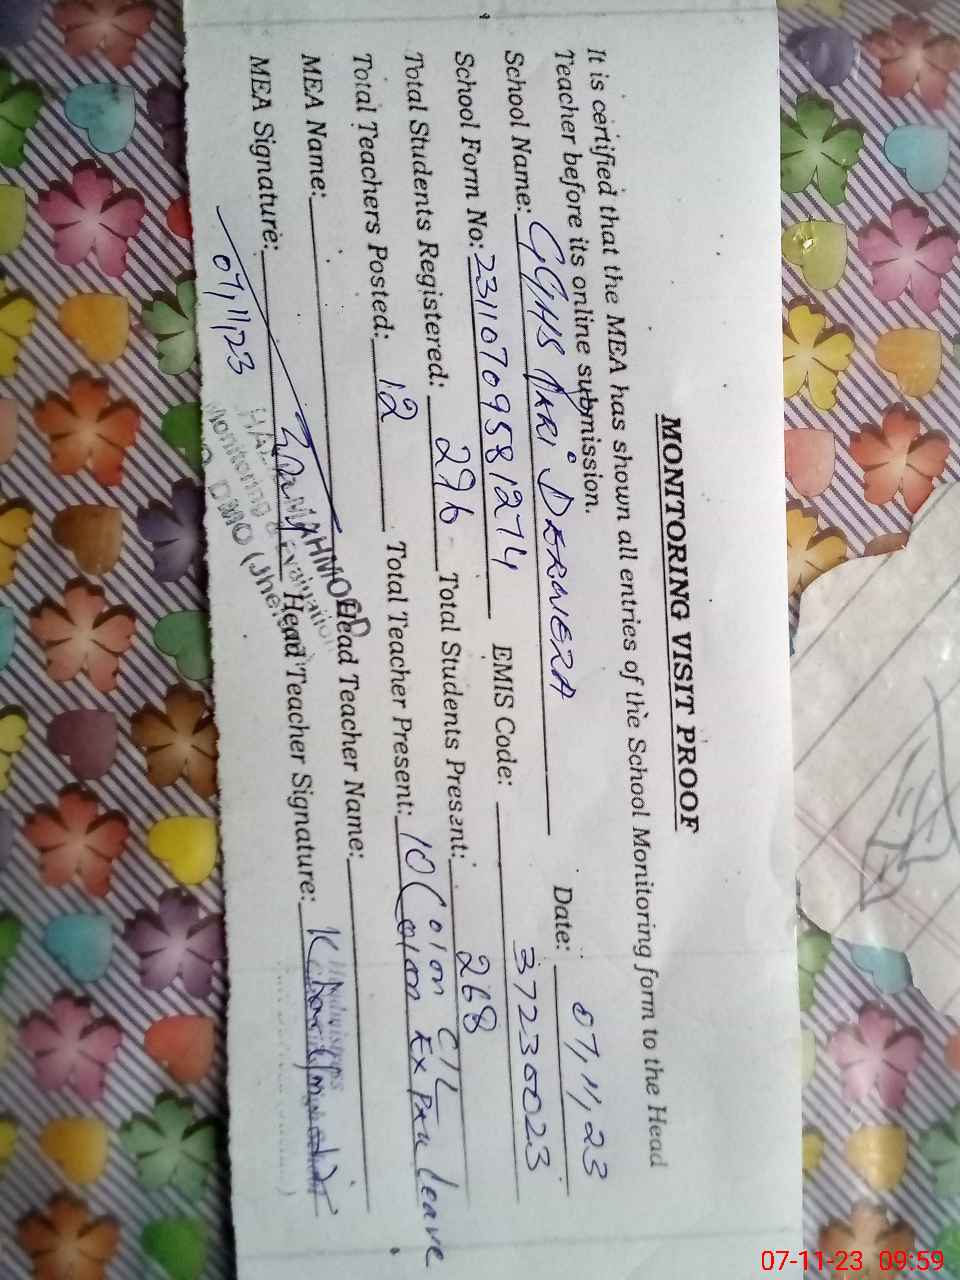 MONITORING VISIT PROOF
It is certified that the MEA has shown all entries of the School Monitoring form to the Head
Teacher before its online submission.
Date: 07,11,23
School Name: GGHS DERWEZA
School Form No: 23110709581274 EMIS Code: 37230023
Total Students Registered: 296 Total Students Present: 268
Total Teachers Posted: 12 Total Teacher Present: 10 (01 on C/L
01 on Ex Leave
MEA Name: Head Teacher Name:
MEA Signature: Head Teacher Signature:
07,11,23
MAHMOOD
Monitoring & Evaluation
DMO
07-11-23 09:59